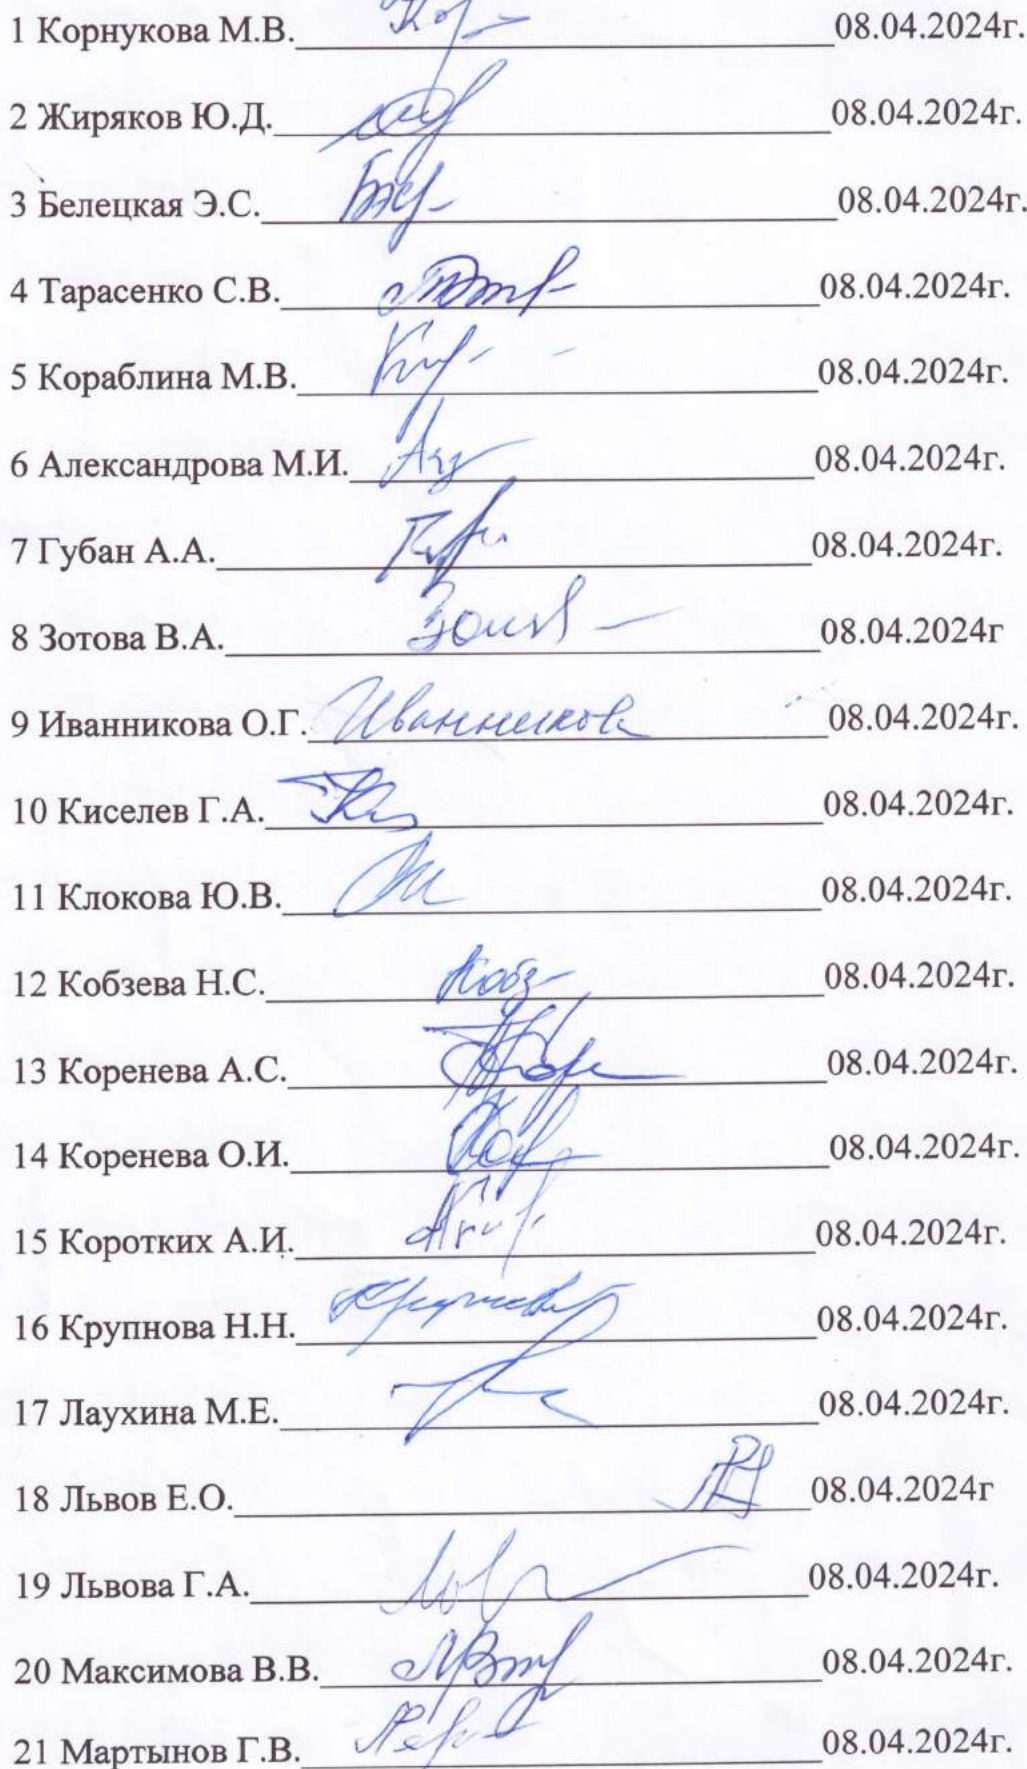 1 Корнукова М.В. 08.04.2024г.
2 Жиряков Ю.Д. 08.04.2024г.
3 Белецкая Э.С. 08.04.2024г.
4 Тарасенко С.В. 08.04.2024г.
5 Кораблина М.В. 08.04.2024г.
6 Александрова М.И. 08.04.2024г.
7 Губан А.А. 08.04.2024г.
8 Зотова В.А. 08.04.2024г
9 Иванникова О.Г. Иванникова 08.04.2024г.
10 Киселев Г.А. 08.04.2024г.
11 Клокова Ю.В. 08.04.2024г.
12 Кобзева Н.С. Кобз 08.04.2024г.
13 Коренева А.С. 08.04.2024г.
14 Коренева О.И. 08.04.2024г.
15 Коротких А.И. 08.04.2024г.
16 Крупнова Н.Н. 08.04.2024г.
17 Лаухина М.Е. 08.04.2024г.
18 Львов Е.О. 08.04.2024г
19 Львова Г.А. 08.04.2024г.
20 Максимова В.В. 08.04.2024г.
21 Мартынов Г.В. 08.04.2024г.